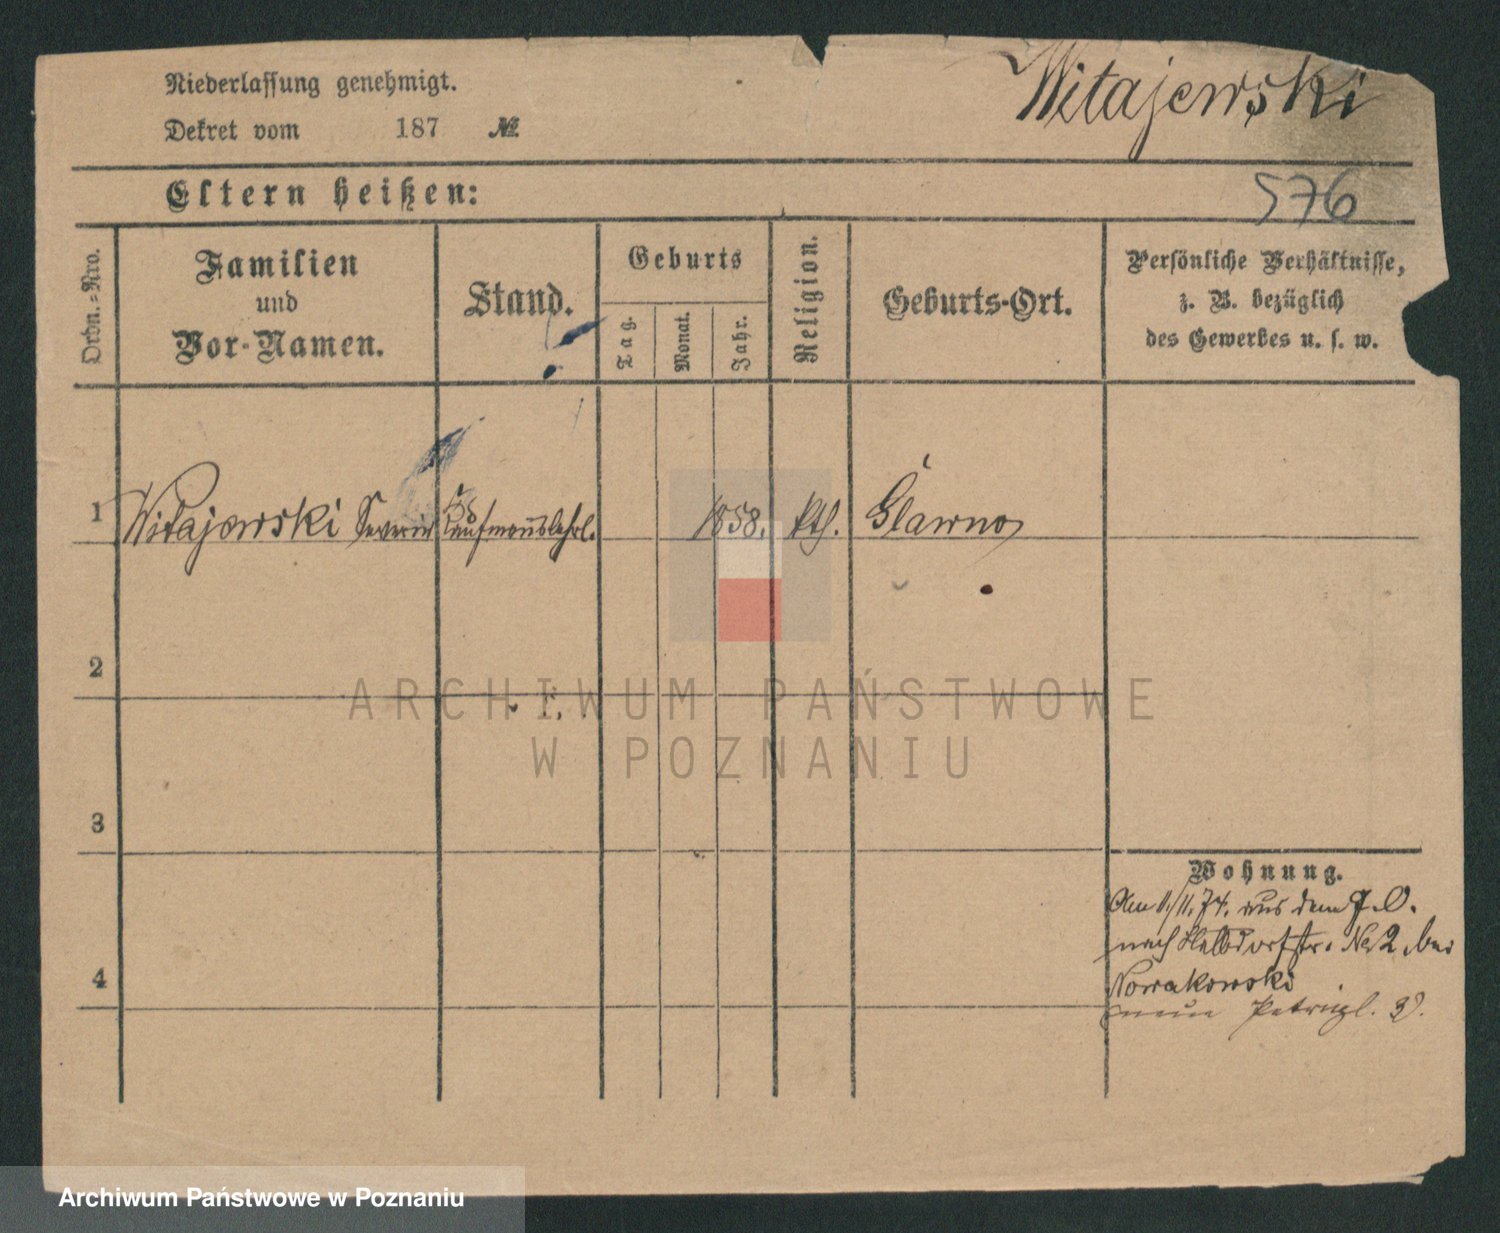 Witajewski
Niederlassung genehmigt.
Dekret vom 187 №
Eltern heißen:
576
Ordn.-Nro.
Familien
und
Vor-Namen.
Stand.
Geburts
Tag.
Monat.
Jahr.
Religion.
Geburts-Ort.
Persönliche Verhältnisse,
z. B. bezüglich
des Gewerbes u. s. w.
1 Witajewski Severin Kaufmannslehrl. 1858. kth. Glawno
2
3
4
Wohnung.
Am 11./11. 74. aus dem
nach Halbdorfstr. No 2 bei
Nowakowski
neue Petripl. 3.
ARCHIWUM PAŃSTWOWE
W POZNANIU
Archiwum Państwowe w Poznaniu